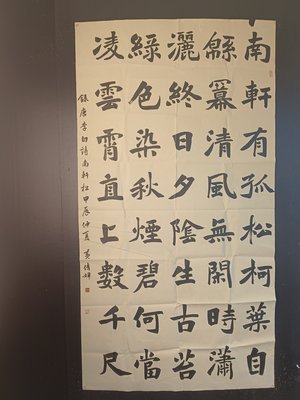 南軒有孤松柯葉自
緜冪清風無閑時瀟
灑終日夕陰生古苔
綠色染秋煙碧何當
凌雲霄直上數千尺
錄唐李白詩南軒松甲辰仲夏黃